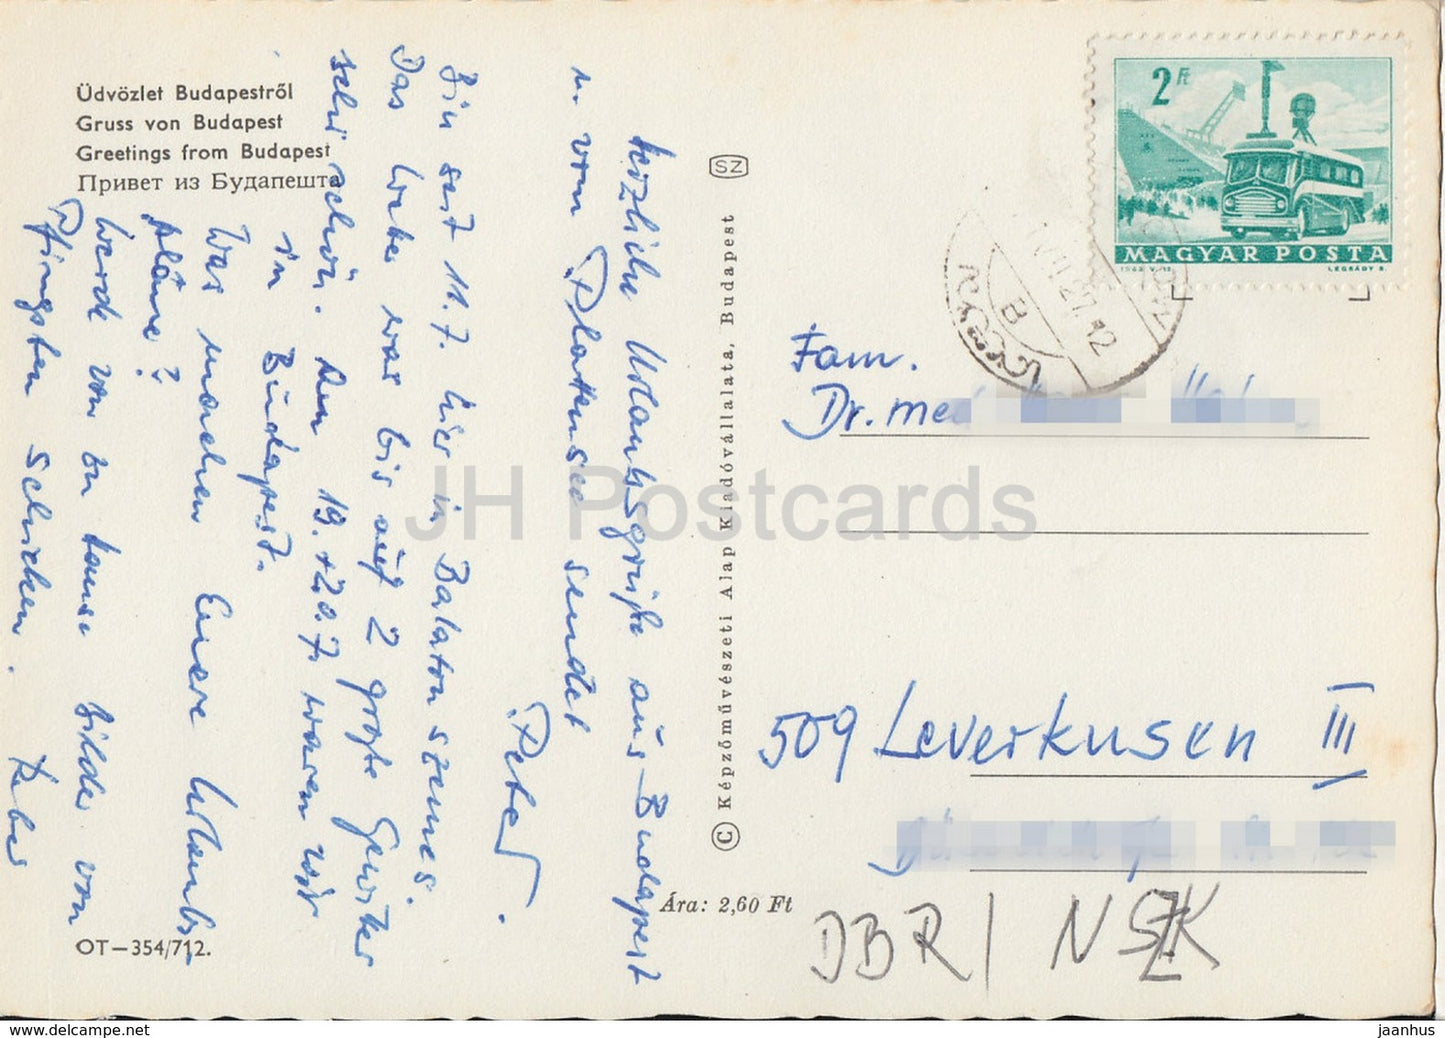 Üdvözlet Budapestről
Gruss von Budapest
Greetings from Budapest
Привет из Будапешта
herzliche Urlaubsgrüße aus Budapest
u. vom Plattensee sendet
Peter.
Bin seit 11.7. hier in Balatonszemes.
Das Wetter war bis auf 2 große Gewitter
sehr schön. Am 19.+20.7. waren wir
in Budapest.
Was machen Eure Urlaubs
pläne?
Werde von zu Hause Bilder von
Pfingsten schicken.
SZ
© Képzőművészeti Alap Kiadóvállalata, Budapest
Ára: 2,60 Ft
OT—354/712.
2 Ft
MAGYAR POSTA
LÉGRÁDY S.
B
27.12
Fam.
Dr. med
509 Leverkusen III
DBR / NSZK
JH Postcards
jaanhus — https://www.delcampe.net